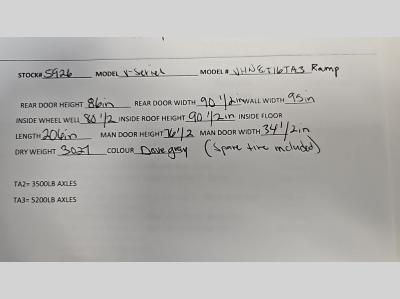 STOCK# 5926 MODEL V-Series MODEL # VHNET16TA3 Ramp
REAR DOOR HEIGHT 86in REAR DOOR WIDTH 90 1/2in WALL WIDTH 95in
INSIDE WHEEL WELL 80 1/2 INSIDE ROOF HEIGHT 90 1/2in INSIDE FLOOR
LENGTH 206in MAN DOOR HEIGHT 76 1/2 MAN DOOR WIDTH 34 1/2in
DRY WEIGHT 3027 COLOUR Dove gray (Spare tire included)
TA2= 3500LB AXLES
TA3= 5200LB AXLES